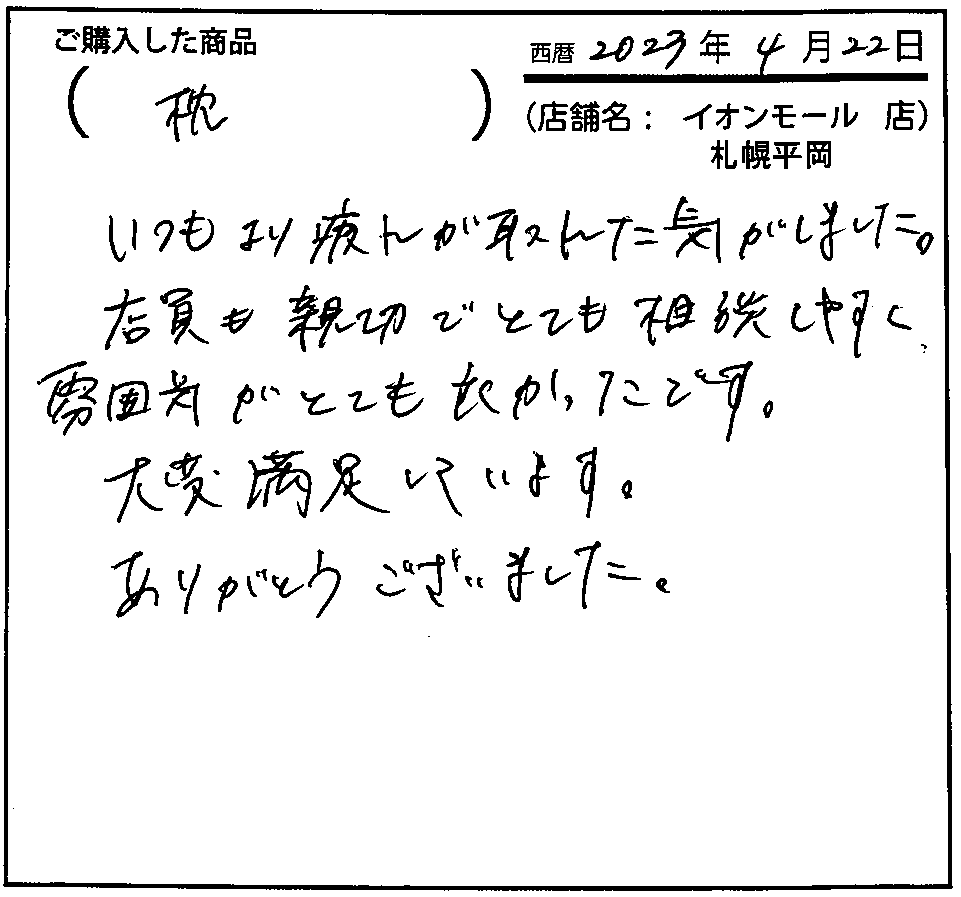 ご購入した商品
西暦 2023年 4月22日
( 枕 )
(店舗名: イオンモール 店)
札幌平岡
いつもより疲れが取れた気がしました。
店員も親切でとても相談しやすく、
雰囲気がとても良かったです。
大変満足しています。
ありがとうございました。